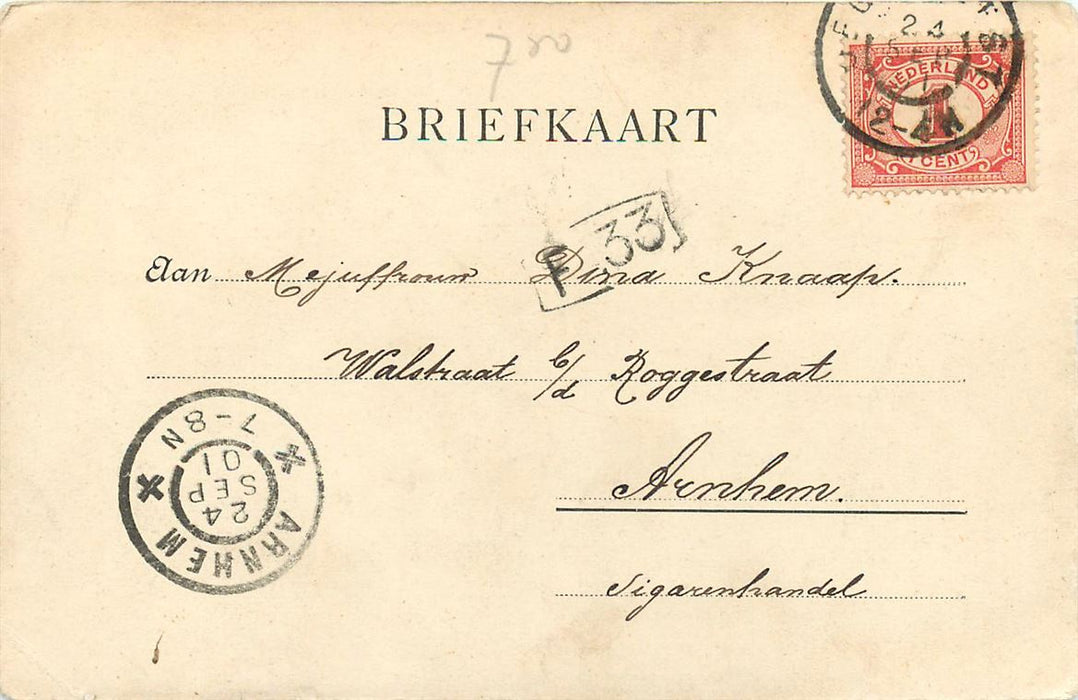 780
BRIEFKAART
24
SEP
12-4N
NEDERLAND
1
1 CENT
F 33
Aan Mejuffrouw Dina Knaap.
Walstraat b/d Roggestraat
Arnhem.
Sigarenhandel
ARNHEM
7-8N
24
SEP
01